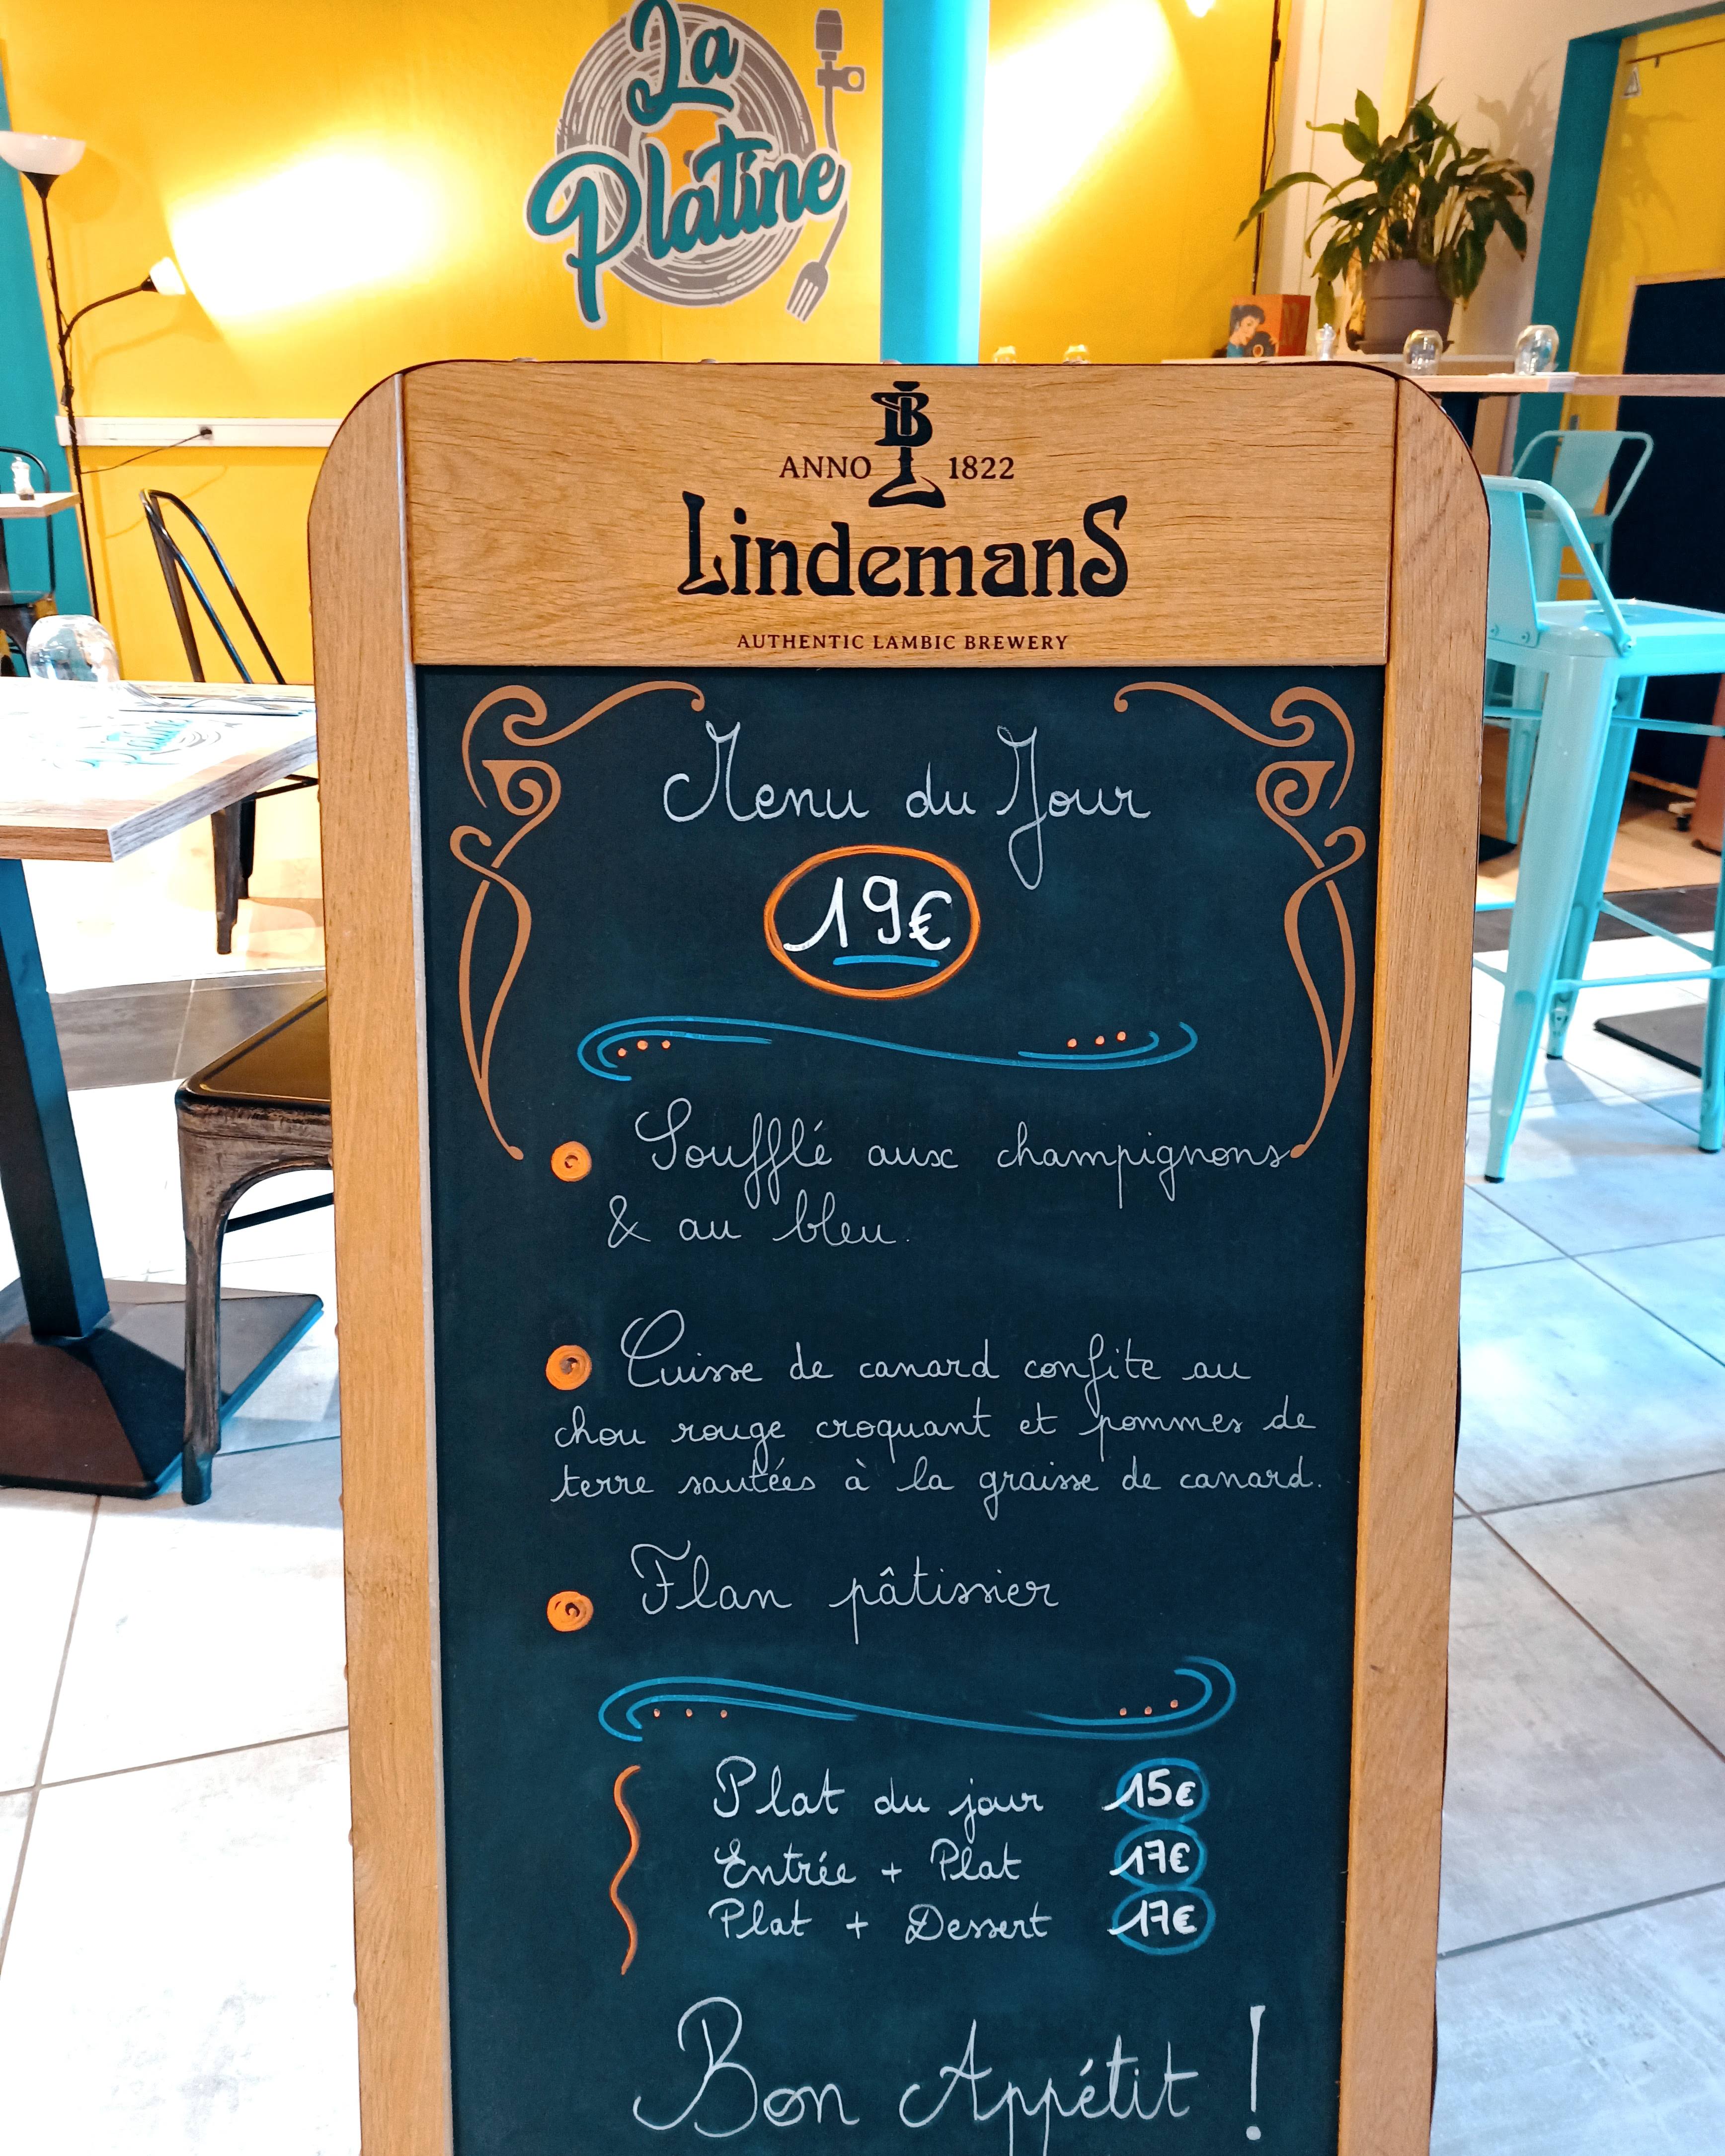 La
Platine
ANNO 1822
Lindemans
AUTHENTIC LAMBIC BREWERY
Menu du Jour
19€
Soufflé aux champignons
& au bleu.
Cuisse de canard confite au
chou rouge croquant et pommes de
terre sautées à la graisse de canard.
Flan pâtissier
Plat du jour 15€
Entrée + Plat 17€
Plat + Dessert 17€
Bon Appétit !